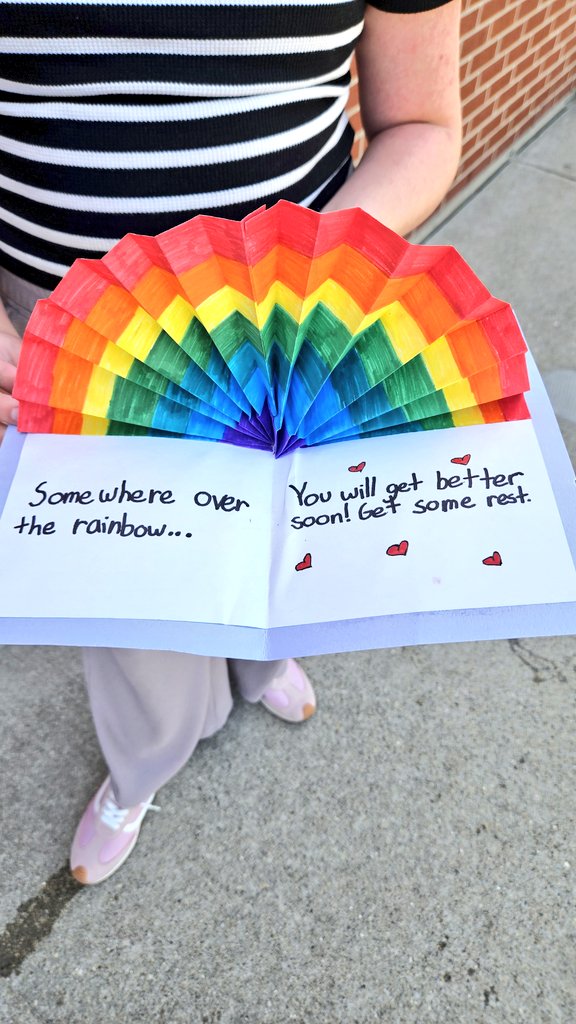 Somewhere over
the rainbow...
You will get better
soon! Get some rest.